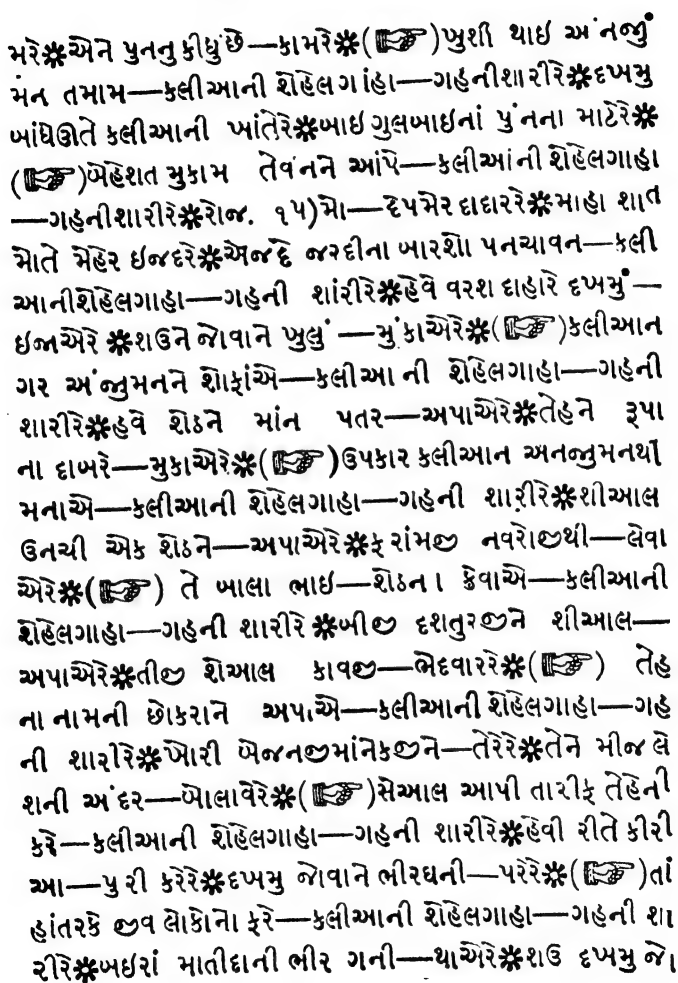 મરે❋એને પુનનુ કીધુંછે—કામરે❋(☞)ખુશી થાઇ અંનજું
મંન તમામ—કલીઆની શેહેલગાંહા—ગહનીશારીરે❋દખમુ
બાંધેઊતે કલીઆની ખાંતેરે❋બાઇ ગુલબાઇનાં પુંનના માટેરે❋
(☞)બેહેશત મુકામ તેવનને આંપે—કલીઆંની શેહેલગાહા
—ગહનીશારીરે❋રોજ. ૧૫)મો—દેપમેર દાદારરે❋માહા શાત
મોતે મેહેર ઇજદરે❋એજદે જરદીના બારશો પનચાવન—કલી
આનીશેહેલગાહા—ગહની શાંરીરે❋હેવે વરશ દાહારે દખમું—
ઇજાએરે ❋શઉને જોવાને ખુલું —મુંકાએરે❋(☞)કલીઆન
ગર અંજુમનને શોફાંએ—કલીઆ ની શેહેલગાહા—ગહની
શારીરે❋હવે શેઠને માંન પતર—અપાએરે❋તેહને રૂપા
ના દાબરે—મુકાએરે❋(☞)ઉપકાર કલીઆન અનજુમનથી
મનાએ—કલીઆની શેહેલગાહા—ગહની શારીરે❋શીઆલ
ઉનચી એક શેઠને—અપાએરે❋ફરાંમજી નવરોજીથી—લેવા
એરે❋(☞) તે બાલા ભાઇ—શેઠના કેવાએ—કલીઆની
શેહેલગાહા—ગહની શારીરે ❋બીજી દશતુરજીને શીઆલ—
અપાએરે❋તીજી શેઆલ કાવજી—ભેદવારરે❋(☞) તેહ
ના નામની છોકરાને અપાએ—કલીઆની શેહેલગાહા—ગહ
ની શારીરે❋ખોરી બેજનજીમાંનેકજીને—તેરેરે❋તેને મીજ લે
શની અંદર—બોલાવેરે❋(☞)સેઆલ આપી તારીફ તેહેની
કરે—કલીઆની શેહેલગાહા—ગહની શારીરે❋હેવી રીતે કીરી
આ—પુરી કરેરે❋દખમુ જોવાને ભીરઘની—પરેરે❋(☞)તાં
હાંતરકે જીવ લોકોનો ફરે—કલીઆની શેહેલગાહા—ગહની શા
રીરે❋બઇરાં માતીદાની ભીર ગની—થાએરે❋શઉ દખમુ જો